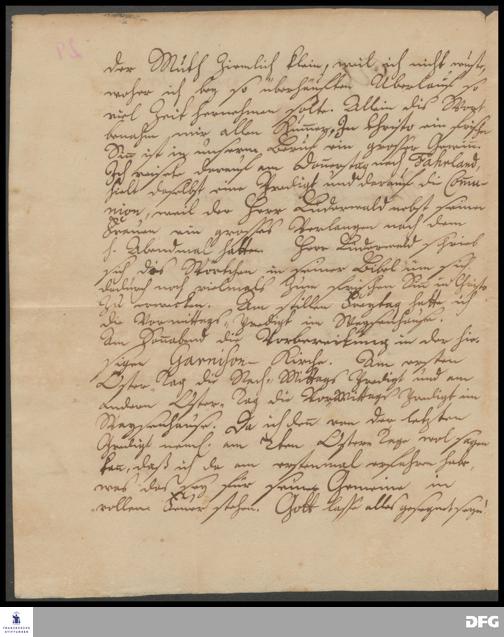 der Muth ziemlich klein, weil ich nicht wuste,
woher ich bey so überhäuften Überlauf so
viel Zeit hernehmen solte. Allein dis Wort
benahm mir allen Kummer, In Christo ein
Sinn ist in unserm Beruf ein grosser Gewinn.
Ich reisete darauf am Donnerstag nach Fahrland,
hielt daselbst eine Predigt und darauf die Commu-
nion, weil der Herr Luderwald nebst seiner
Frauen ein grosses Verlangen nach dem
h. Abendmal hatten. Herr Luderwald schrieb
sich dis Wörtchen in seiner Bibel um sich
dadurch noch vielmals zum Sinn in Christo
zu erwecken. Am stillen Freytag hatte ich
die Vormittags-Predigt im Waysenhause.
Am Sonnabend die Vorbereitung in der hie-
sigen Garnison-Kirche. Am ersten
Oster-Tag die Nach-Mittags Predigt und am
andern Oster-Tag die VorMittags Predigt im
Waysenhause. Da ich denn von der letzten
Predigt nemlich am 2ten Oster-Tage wol sagen
kan, daß ich da am erstenmal erfahren habe,
was das sey für seiner Gemeine in
vollem Feuer stehen. Gott lasse alles gesegnet seyn
29
FRANCKESCHE
STIFTUNGEN
DFG